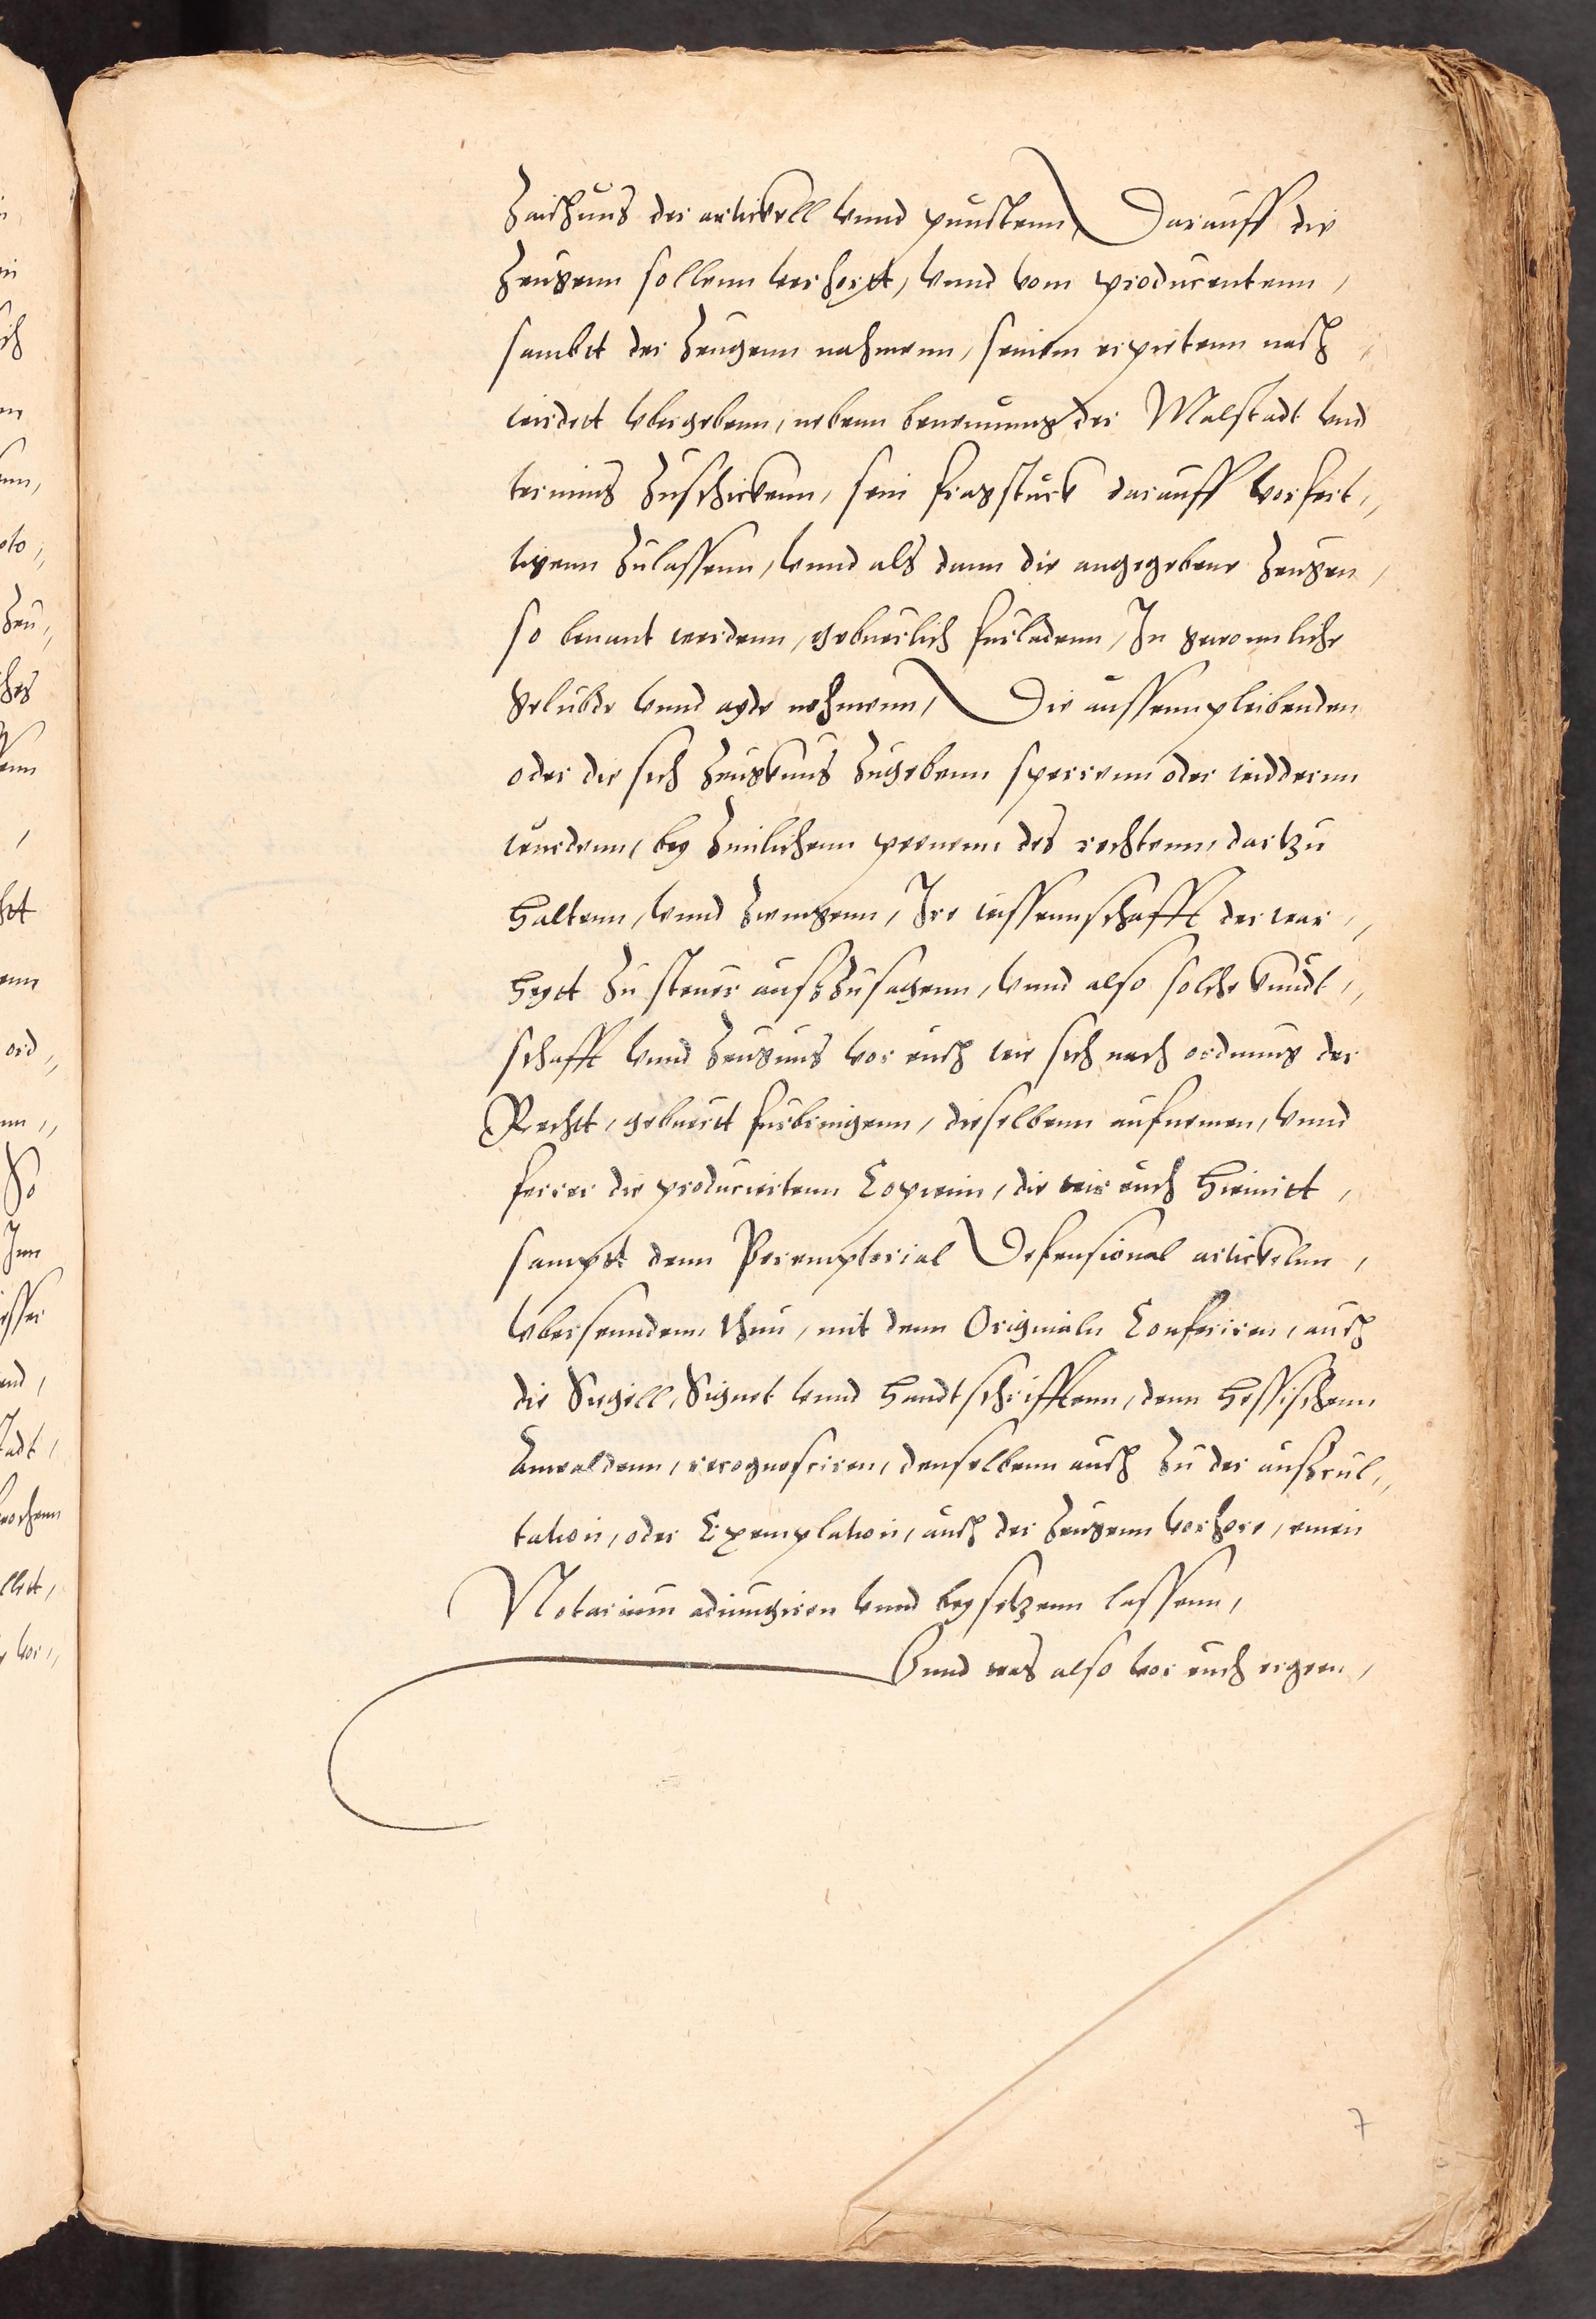 Zaichnus der artickell vnnd punctenn, Darauff die
Zeugenn sollenn verhortt, vnnd vom producentenn,
sambtt der Zeugenn nahmenn, seinem
wirdett vbergebenn, nebenn benennung der Malstadt vnd
termins Zuschickenn, sein fragstuck darauff vorfert,,
tigenn Zulassenn, vnnd als dann die angegebene Zeugen,
so benant werdenn, geburlich furladenn, In gewonnliche
gelubde vnnd ayde nehmenn, Die aussennpleibenden
oder die sich Zeugknus Zugebenn sperrenn oder widdernn
wurdenn, bey Zimlichenn peenenn des rechtenn, dartzu
haltenn, vnnd Zwingenn, Ire wissennschafft der war,,
heytt Zu steuer ausszusagenn, vnnd also solche kundt,,
schafft vnnd Zeugnus vor euch wie sich nach ordnung der
Recht, geburtt furbringenn, dieselbenn aufnemen, vnnd
ferrer die producirtenn Copeien, die wir euch hiemitt,
sampt denn Peremptorial Defensional artickelnn,
vbersenndenn thun, mit denn Originaln Conferiren, auch
die Siegell, Signet vnnd handtschrifftenn, denn hessischenn
Anwaldenn, recognosciren, denselbenn auch Zu der auscul,,
tation, oder Exemplation, auch der Zeugenn vorhore, einen
Notarium adiungiren vnnd beysetzenn lassenn,
Vnnd was also vor euch ergeen,
7